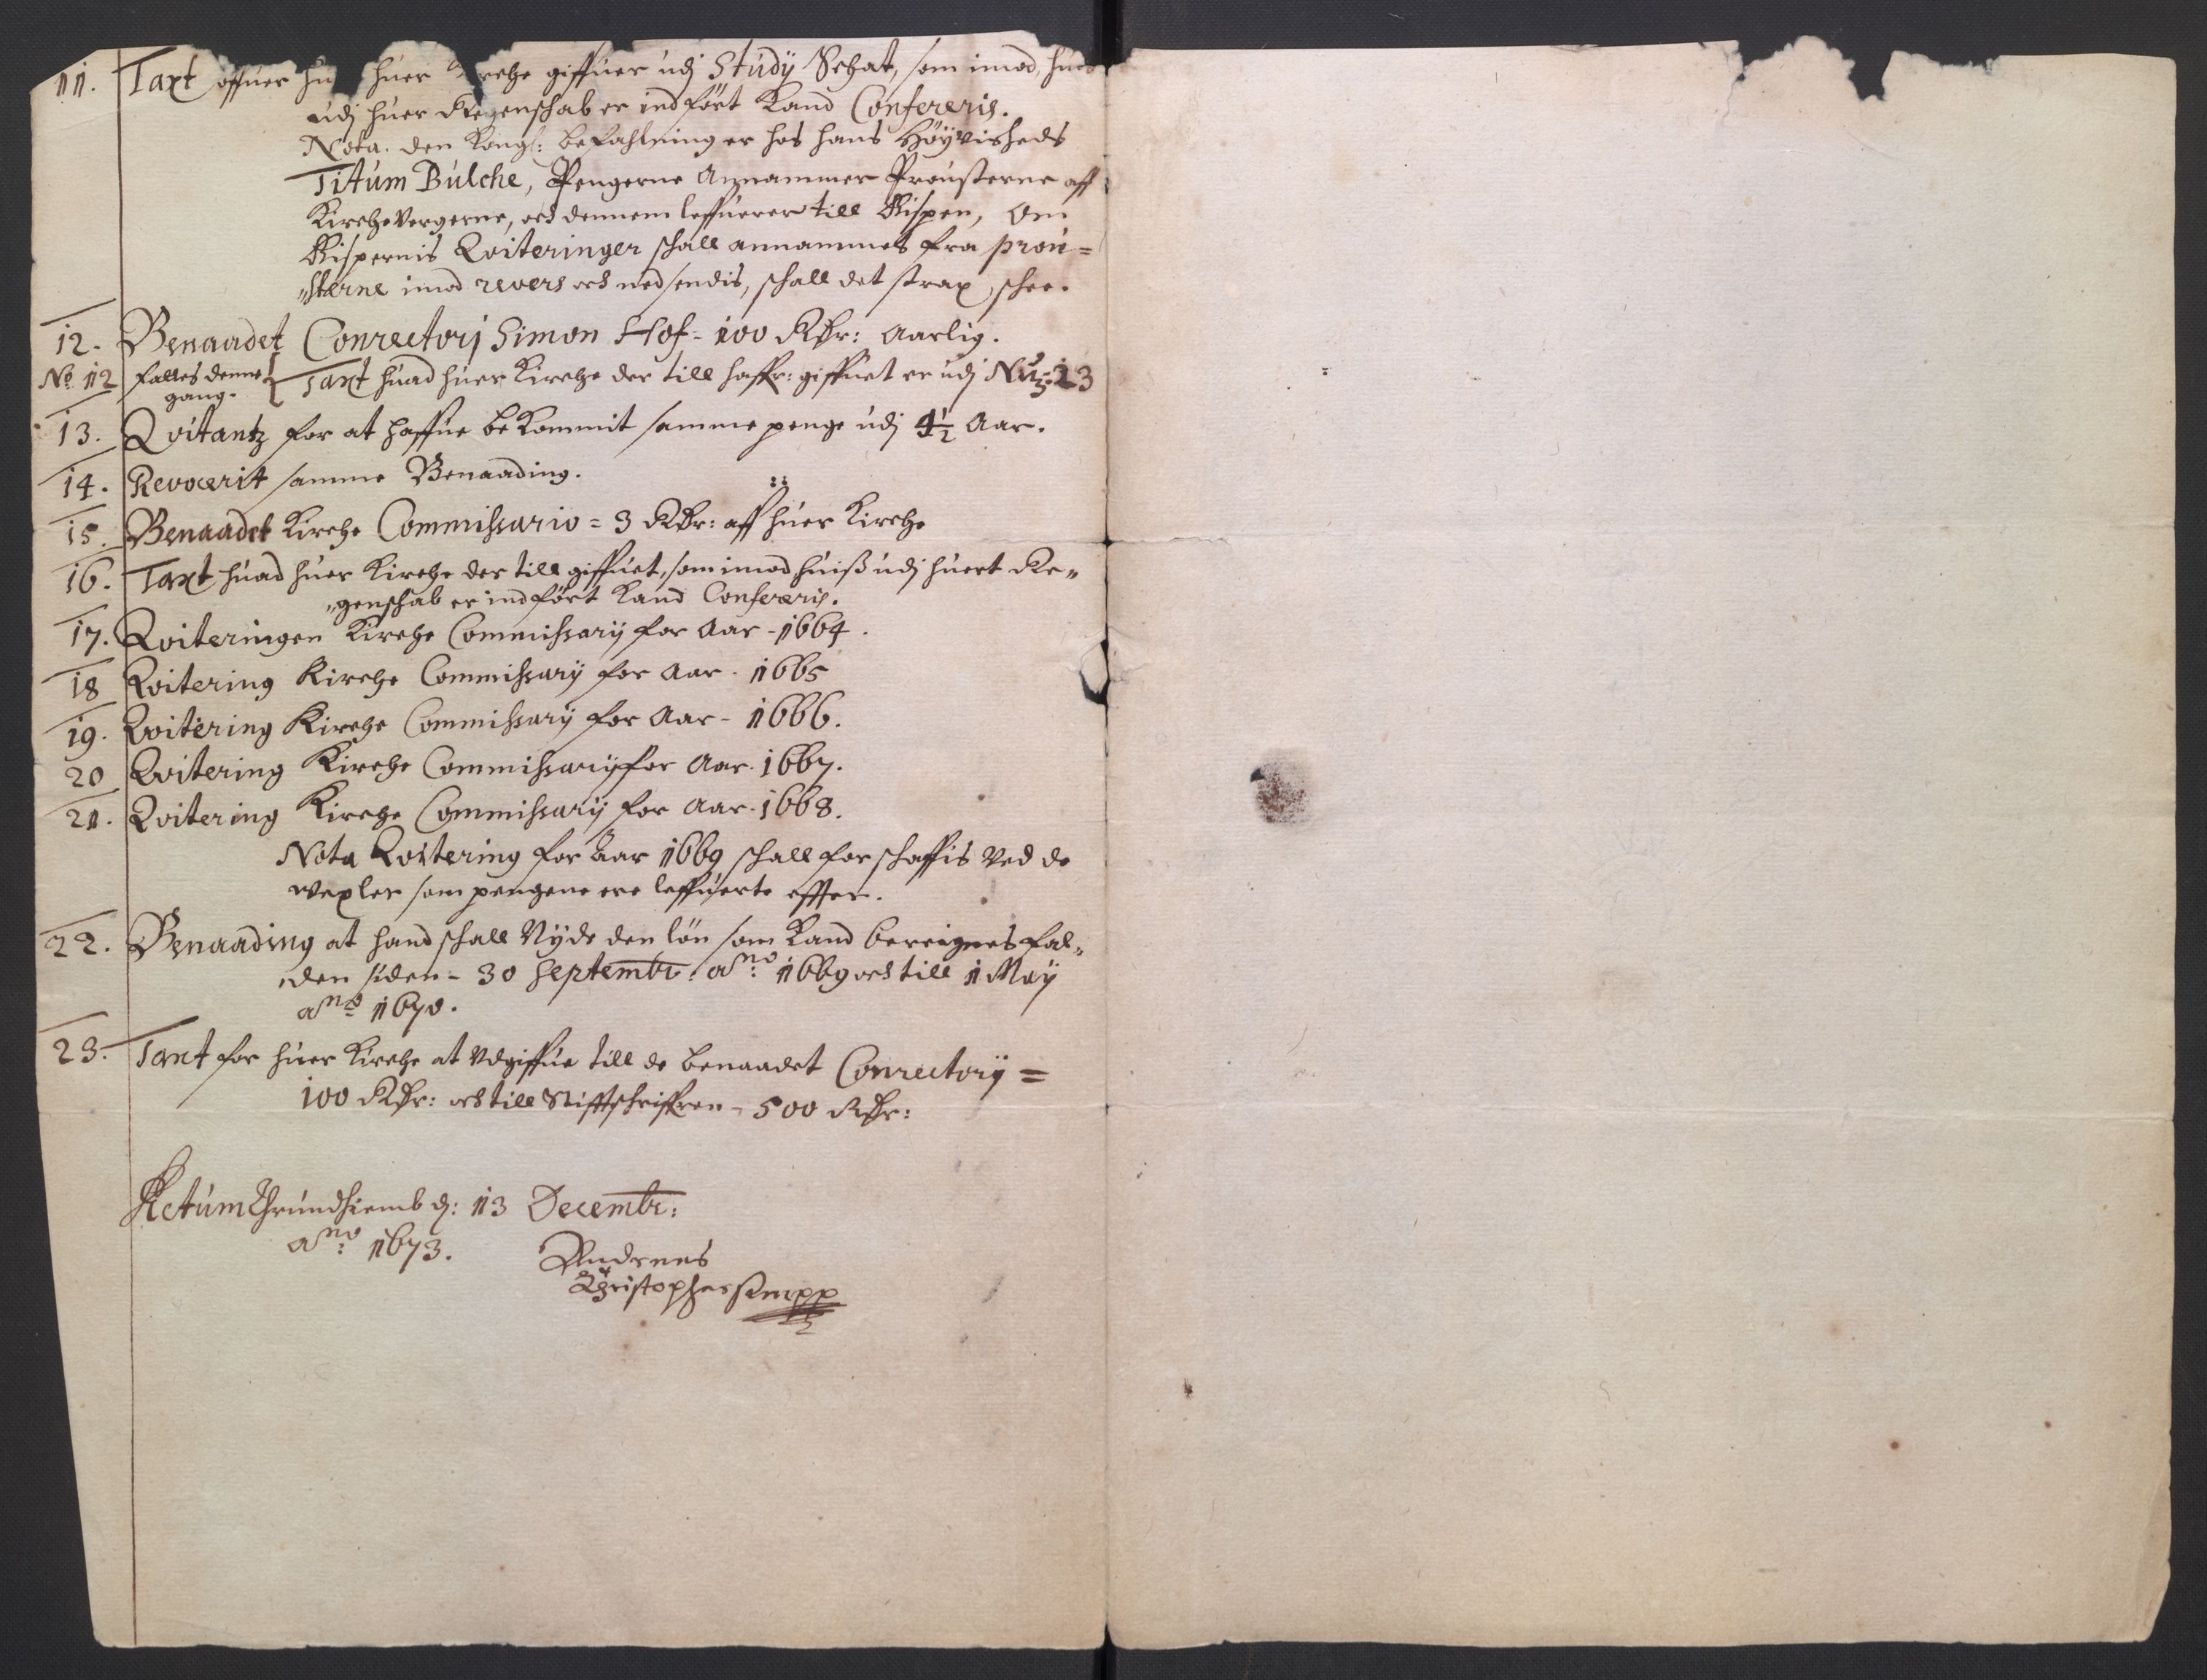 11. Taxt offuer hu huer Kirche giffuer udj Studÿ Schat, som imod hues
udj huer Regenschab er indført kand Confereris.
Nota. den Kongl: befahlning er hos hans Høÿvisheds
Titum Bulche, Pengerne Annammer Prousterne aff
Kirchevergerne, och dennem leffuerer till Bispen, Om
Bispernis Qviteringer schall annammes fra prou=
"sterne imod revers och nedsendis, schall det strax schee.
12. Benaadet Conrectorj Simon Hof - 100 Rdr: Aarlig.
No 12 falles denne gang. Taxt huad huer Kirche der till haffr: giffuet er udj Nu: 23
13. Qvitantz for at haffue bekommit samme penge udj 4½ Aar.
14. Revocerit samme Benaading.
15. Benaadet Kirche Commissario = 3 Rdr: aff huer Kirche
16. Taxt huad huer Kirche der till giffuet, som imod huiß udj huert Re"
"genschab er indført kand Confereris.
17. Qviteringen Kirche Commissarÿ for Aar - 1664.
18 Qvitering Kirche Commissarÿ for Aar - 1665
19. Qvitering Kirche Commissarÿ for Aar - 1666.
20 Qvitering Kirche Commissarÿ for Aar. 1667.
21. Qvitering Kirche Commissarÿ for Aar. 1668.
Nota Qvitering for Aar 1669 schall forschaffis Ved de
vexler som pengene ere leffuerte effter.
22. Benaading at hand schall Nÿde den løn som kand bereignes fal"
den siden - 30 Septembr: Ano 1669 och till 1 Maÿ
Ano 1670.
23. Taxt for huer Kirche at Udgiffue till de benaadet Conrectorÿ =
100 Rdr: och till Stifftschriffren - 500 Rdr:
Actum Thrundhiemb d: 13 Decembr:
Ano 1673.
Andreas
Christophersen mpp